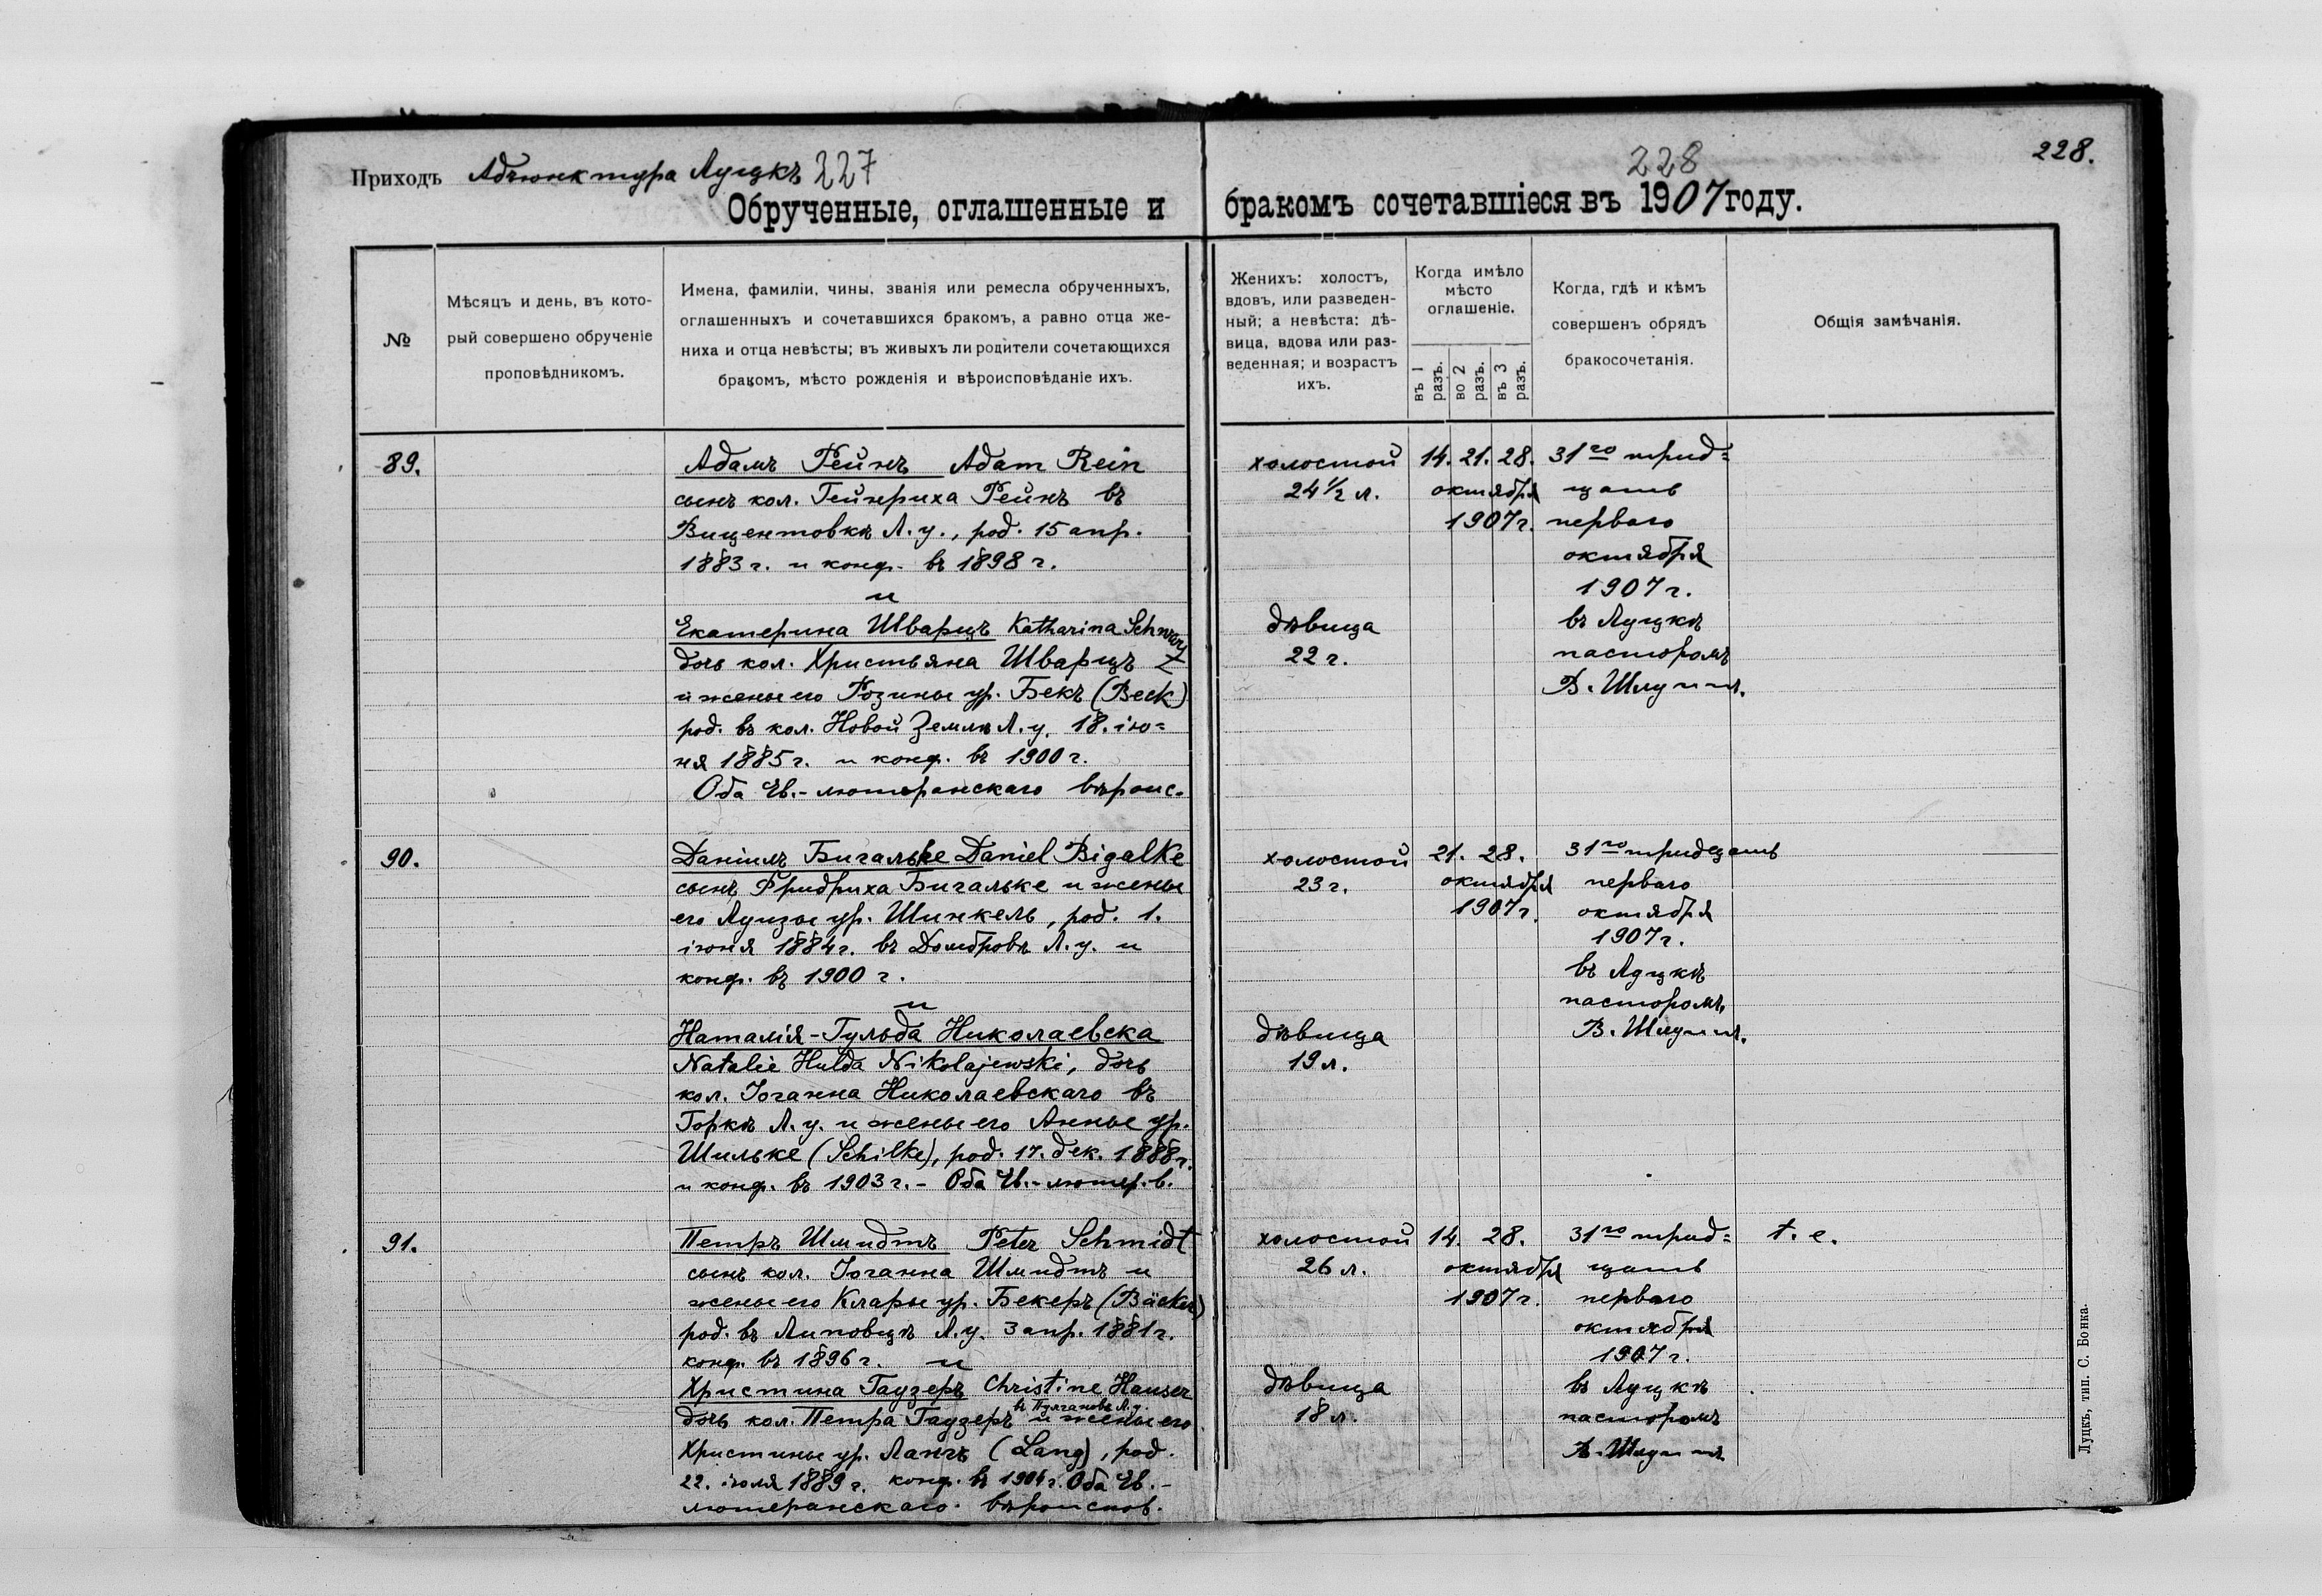 Приходъ Адъюнктура Луцкъ 227
Обрученные, оглашенные и
№
Мѣсяцъ и день, въ кото-
рый совершено обрученіе
проповѣдникомъ.
Имена, фамиліи, чины, званія или ремесла обрученныхъ,
оглашенныхъ и сочетавшихся бракомъ, а равно отца же-
ниха и отца невѣсты; въ живыхъ ли родители сочетающихся
бракомъ, мѣсто рожденія и вѣроисповѣданіе ихъ.
89.
Адамъ Рейнъ Adam Rein
сынъ кол. Гейнриха Рейнъ въ
Вицентовкѣ Л. у., род. 15 апр.
1883 г. и конф. въ 1898 г.
и
Екатерина Шварцъ Katharina Schwarz
дочь кол. Христьяна Шварцъ
и жены его Розины ур. Бекъ (Beck)
род. въ кол. Новой Землѣ Л. у. 18. ію=
ня 1885 г. и конф. въ 1900 г.
Оба Ев.-лютеранскаго вѣроис.
90.
Даніилъ Бигальке Daniel Bigalke
сынъ Фридриха Бигальке и жены
его Луизы ур. Шинкель, род. 1.
іюня 1884 г. въ Домбровѣ Л. у. и
конф. въ 1900 г.
и
Наталія-Гульда Николаевска
Natalie Hulda Nikolajewski, дочь
кол. Іоганна Николаевскаго въ
Горкѣ Л. у. и жены его Анны ур.
Шильке (Schilke), род. 17. дек. 1888 г.
и конф. въ 1903 г. - Оба Ев.-лютер. в.
91.
Петръ Шмидтъ Peter Schmidt
сынъ кол. Іоганна Шмидтъ и
жены его Клары ур. Бекеръ (Bäcker)
род. въ Липовцѣ Л. у. 3 апр. 1881 г.
конф. въ 1896 г. и
Христина Гаузеръ Christine Hauser
въ Пулгановѣ Л. у.
дочь кол. Петра Гаузеръ и жены его
Христины ур. Лангъ (Lang), род.
22. іюля 1889 г. конф. въ 1904 г. Оба Ев.-
лютеранскаго вѣроиспов.
228
228.
бракомъ сочетавшіеся въ 1907 году.
Женихъ: холостъ,
вдовъ, или разведен-
ный; а невѣста: дѣ-
вица, вдова или раз-
веденная; и возрастъ
ихъ.
Когда имѣло
мѣсто
оглашеніе.
въ 1 разъ.
во 2 разъ.
въ 3 разъ.
Когда, гдѣ и кѣмъ
совершенъ обрядъ
бракосочетанія.
Общія замѣчанія.
холостой 14. 21. 28. 31го трид=
24 1/2 л. октября цать
1907 г. перваго
октября
1907 г.
дѣвица въ Луцкѣ
22 г. пасторомъ
В. Шлуппъ.
холостой 21. 28. 31го тридцать
23 г. октября перваго
1907 г. октября
1907 г.
въ Луцкѣ
пасторомъ
дѣвица В. Шлуппъ.
19 л.
холостой 14. 28. 31го трид= t. e.
26 л. октября цать
1907 г. перваго
октября
1907 г.
дѣвица въ Луцкѣ
18 л. пасторомъ
В. Шлуппъ
Луцкъ, тип. С. Бонка.